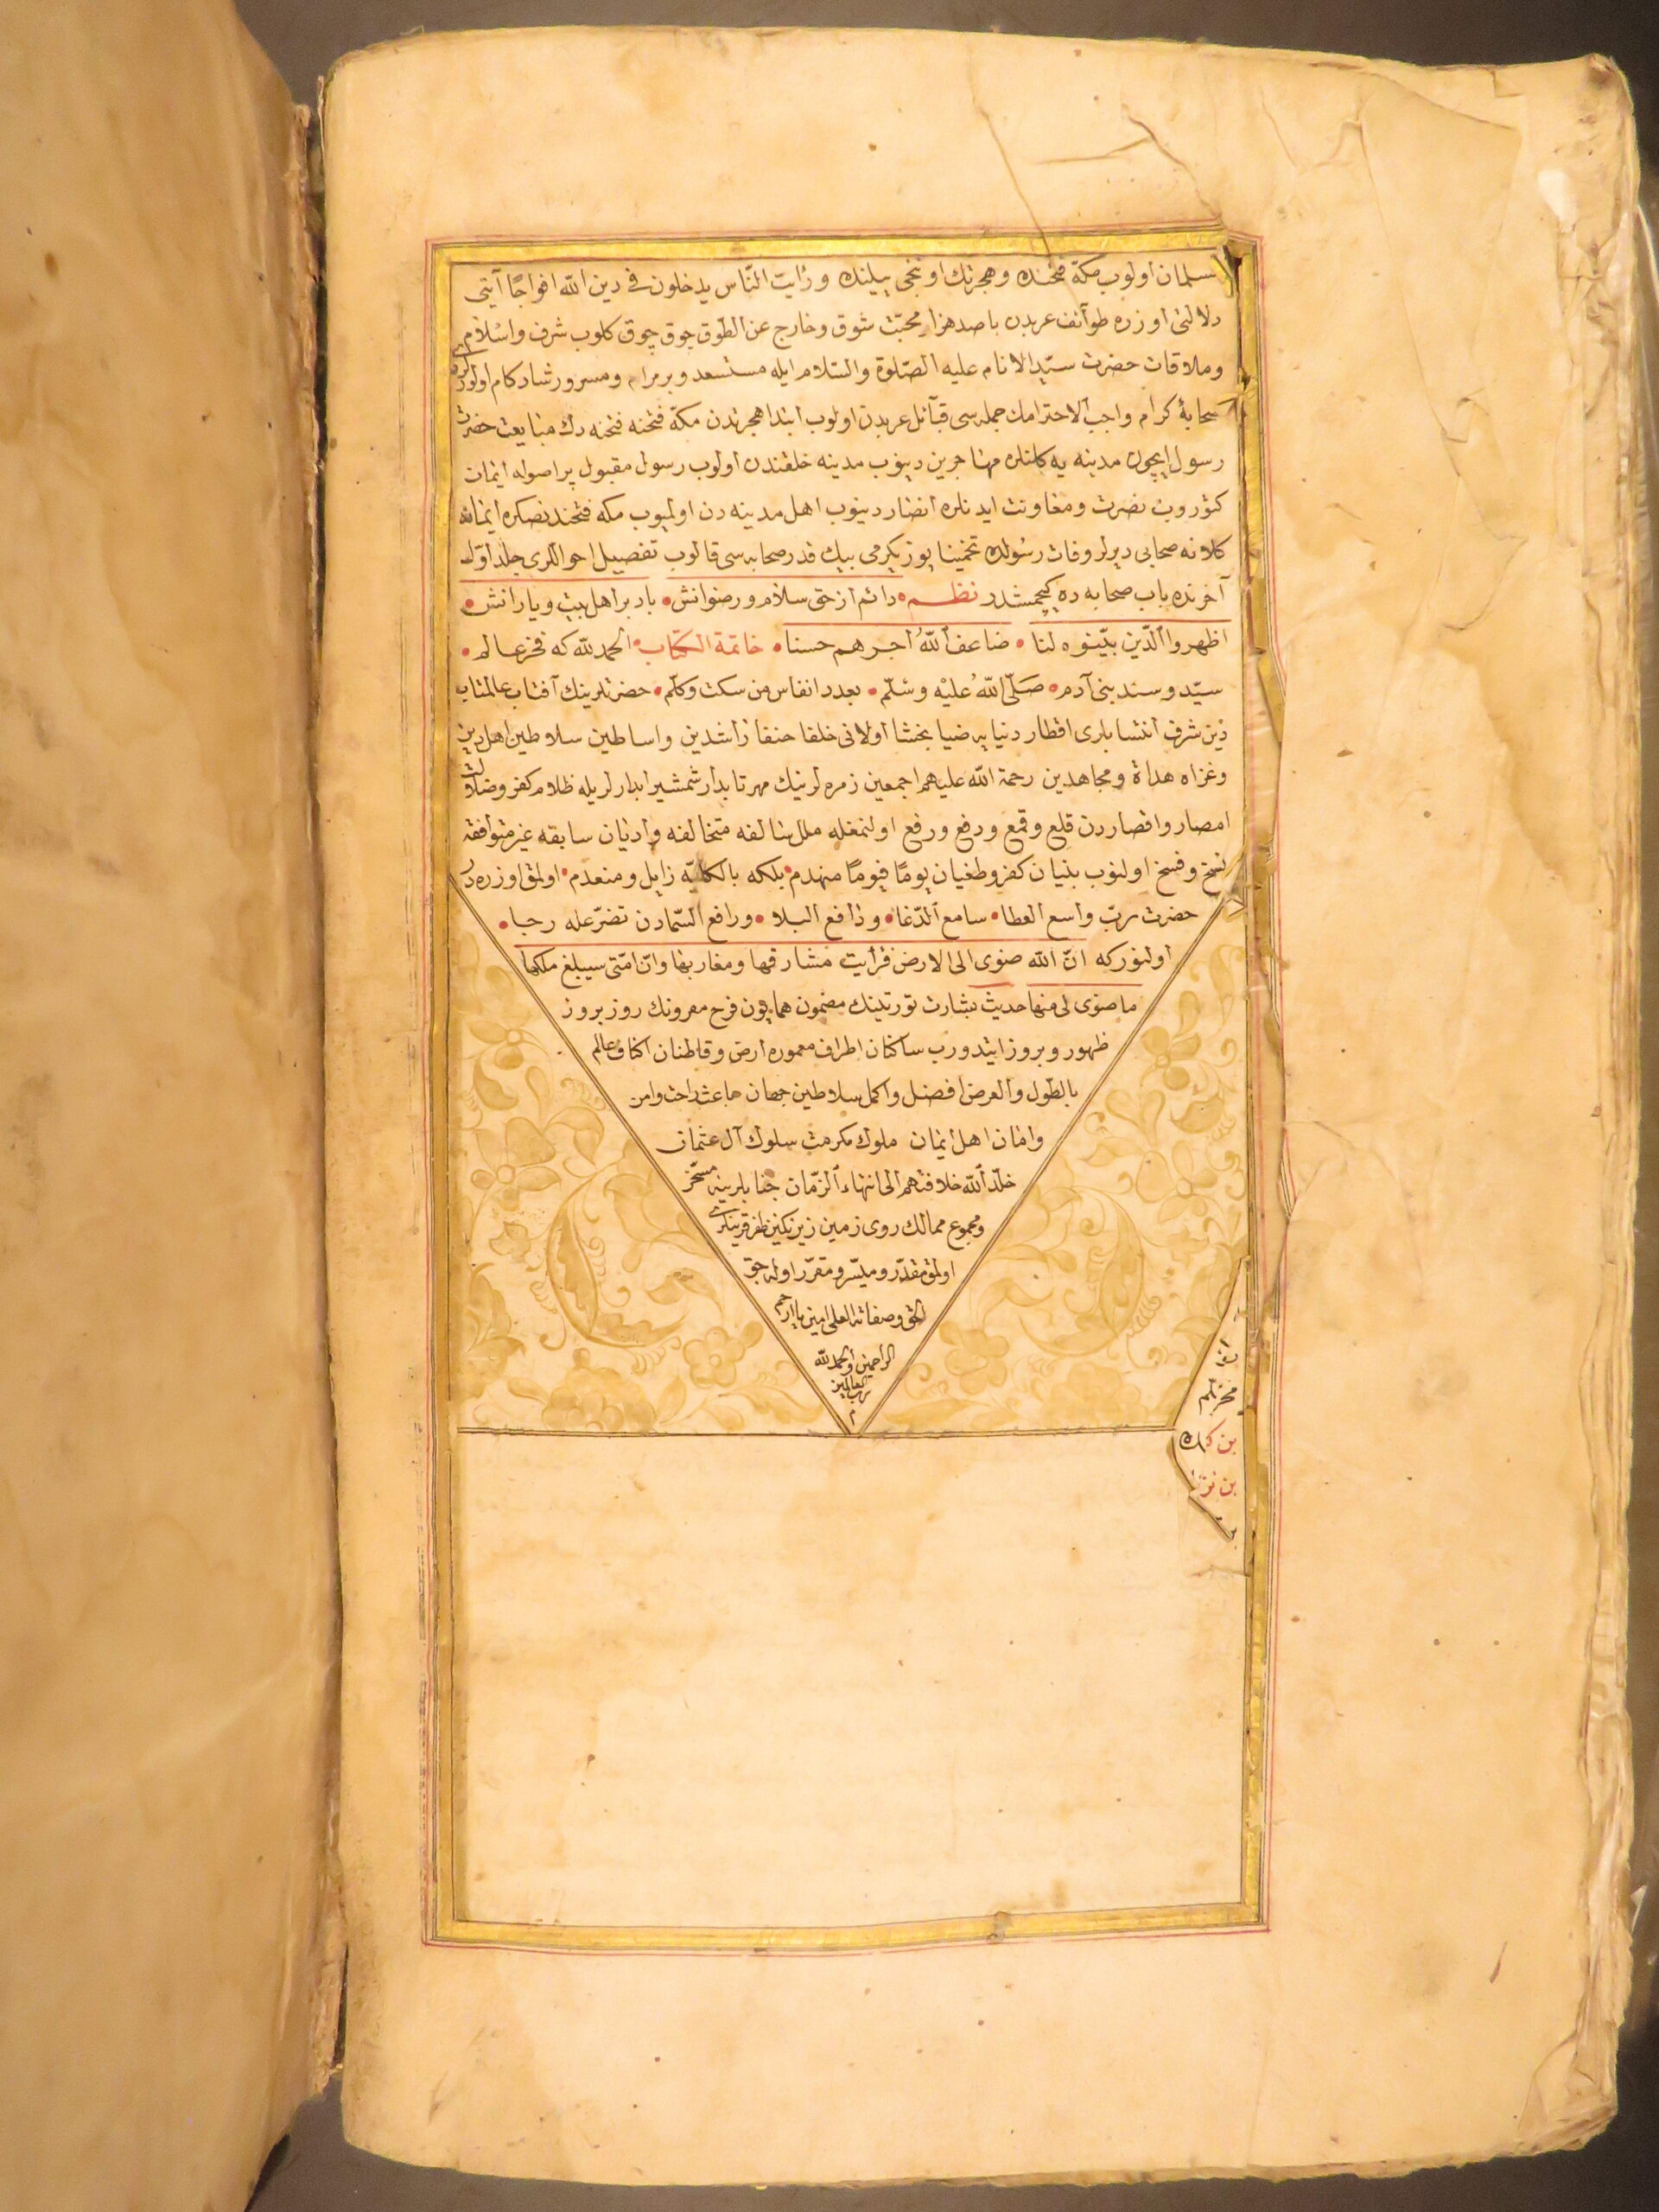 مسلمان اولوب مكّة فتحنده وهجرتك اوننجى ييلنده ورايت النّاس يدخلون فى دين اللّه افواجًا آيتى
دلالتى اوزره طوآئف عربدن باصد هزار محبّت شوق وخارج عن الطوق جوق جوق كلوب شرف واسلام
وملاقات حضرت سيّد الانام عليه الصّلوة والسّلام ايله مستسعد وبرمرام ومسرور شادكام اولورلر
صحابۀ كرام واجب الاحترامك جمله سى قبآئل عربدن اولوب ابتدا هجرتدن مكّة فتحنه فتحنه دك متابعت حضرت
رسول ايچون مدينه يه كلنلره مهاجرين ديوب مدينه خلقندن اولوب رسول مقبول پر اصوله ايمان
كتوروب نصرت ومعاونت ايدنلره انصار ديوب اهل مدينه دن اولميوب مكه فتحندنصكره ايمانه
كلانه صحابى ديرلر وفات رسولده تخمينا يوز يكرمى بيك قدر صحابه سى قالوب تفصيل احواللرى جلد اوّلك
آخرنده باب صحابه ده كچمشدر نظم دائم از حق سلام ورضوانش باد بر اهل بيت ويارانش
اظهروا الّذين بيّنوه لنا ضاعف اللّه اجرهم حسنا خاتمة الكتاب الحمد للّه كه فخر عالم
سيّد وسند بنى آدم صلّى اللّه عليه وسلّم بعدد انفاس من سكت وكلّم حضرتلرينك آفتاب عالمتاب
دين شرف انتسابلرى اقطار دنيايه ضيا بخشا اولانى خلفا حنفا راشدين واساطين سلاطين اهل دين
وغزاه هداة ومجاهدين رحمة اللّه عليهم اجمعين زمره لرينك مهر تابدار شمشير ابدارلريله ظلام كفر وضلالت
امصار واقصاردن قلع وقمع ودفع ورفع اولنمغله ملل سالفه متخالفه واديان سابقه غير متوافقه
نسخ وفسخ اولنوب بنيان كفر وطغيان يومًا فيومًا منهدم بلكه بالكليّه زايل ومنعدم اولمق اوزره در
حضرت ربّ واسع العطا سامع الدّعا ودافع البلا ورافع السّمادن تضرّعله رجا
اولنور كه انّ اللّه ضوى الى الارض فرأيت مشارقها ومغاربها وانّ امّتى سيبلغ ملكها
ما ضوى لى منها حديث بشارت نورتينك مضمون همايون فرح مقرونك روز بروز
ظهور وبروز ايتدورب ساكنان اطراف معموره ارض وقاطنان اكناف عالم
بالطول والعرض افضل واكمل سلاطين جهان باعث راحت وامن
وامان اهل ايمان ملوك مكرمت سلوك آل عثمان
خلّد اللّه خلافتهم الى انتهاء الزّمان جنابلرينه مسخّر
ومجموع ممالك روى زمين زير نكين ظفر قرينلرى
اولمق مقدّر وميسّر ومقرّر اوله بحق
الحق وصفاته العلى امين يا ارحم
الراحمين والحمد للّه
ربّ العالمين
م
بن
بن